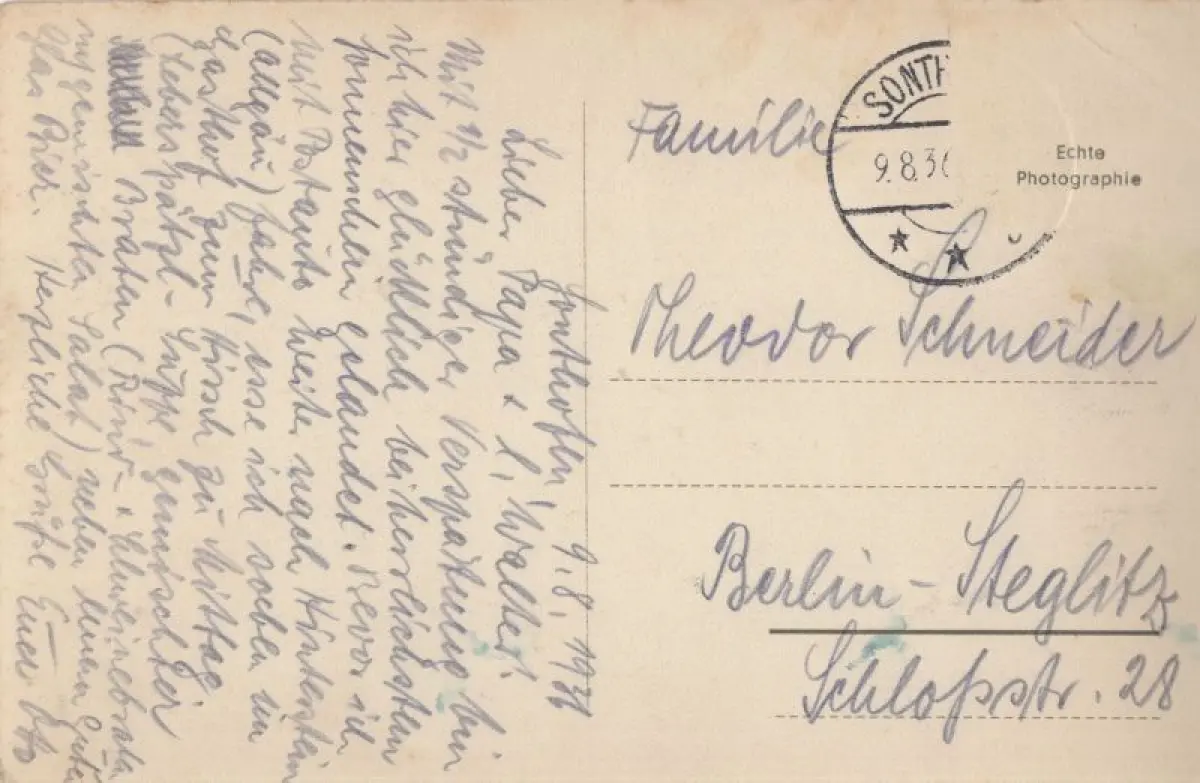 Sonthofen, 9. 8. 1936
Lieber Papa & l. Walter!
Mit 1/2 stündiger Verspätung bin
ich hier glücklich bei herrlichstem
Sonnenschein gelandet. Bevor ich
mit Postauto weiter nach Hinterstein
(Allgäu) fahre, esse ich soeben im
Gasthof zum Hirsch zu Mittag
(Leberspätzl-Suppe, gemischter
Braten (Rind- & Schweinebraten
mit gemischten Salat) neben einem guten
Glas Bier. Herzliche Grüße Euer Otto
Familie
Theodor Schneider
Berlin-Steglitz
Schloßstr. 28
SONTH
9.8.36
Echte
Photographie